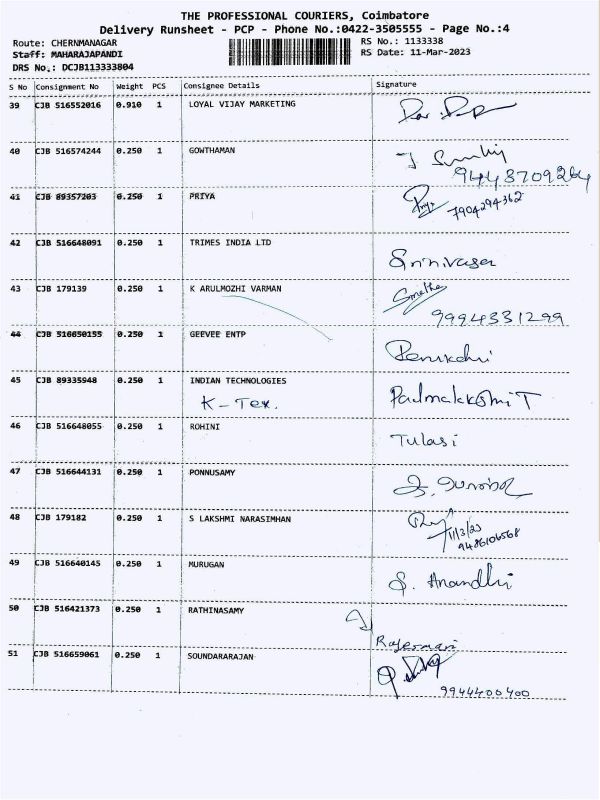 THE PROFESSIONAL COURIERS, Coimbatore
Delivery Runsheet - PCP - Phone No.:0422-3505555 - Page No.:4
Route: CHERNMANAGAR
Staff: MAHARAJAPANDI
DRS No.: DCJB113333804
RS No.: 1133338
RS Date: 11-Mar-2023
S No Consignment No Weight PCS Consignee Details Signature
39 CJB 516552016 0.910 1 LOYAL VIJAY MARKETING
40 CJB 516574244 0.250 1 GOWTHAMAN
9443709264
41 CJB 89357203 0.250 1 PRIYA Priya
7904294362
42 CJB 516648091 0.250 1 TRIMES INDIA LTD Srinivasan
43 CJB 179139 0.250 1 K ARULMOZHI VARMAN
9994331299
44 CJB 516650155 0.250 1 GEEVEE ENTP
45 CJB 89335948 0.250 1 INDIAN TECHNOLOGIES
K-Tex. Padmalakshmi T
46 CJB 516648055 0.250 1 ROHINI Tulasi
47 CJB 516644131 0.250 1 PONNUSAMY
48 CJB 179182 0.250 1 S LAKSHMI NARASIMHAN
11/3/23
9486106568
49 CJB 516640145 0.250 1 MURUGAN S. Anandhi
50 CJB 516421373 0.250 1 RATHINASAMY
51 CJB 516659061 0.250 1 SOUNDARARAJAN
9944400400